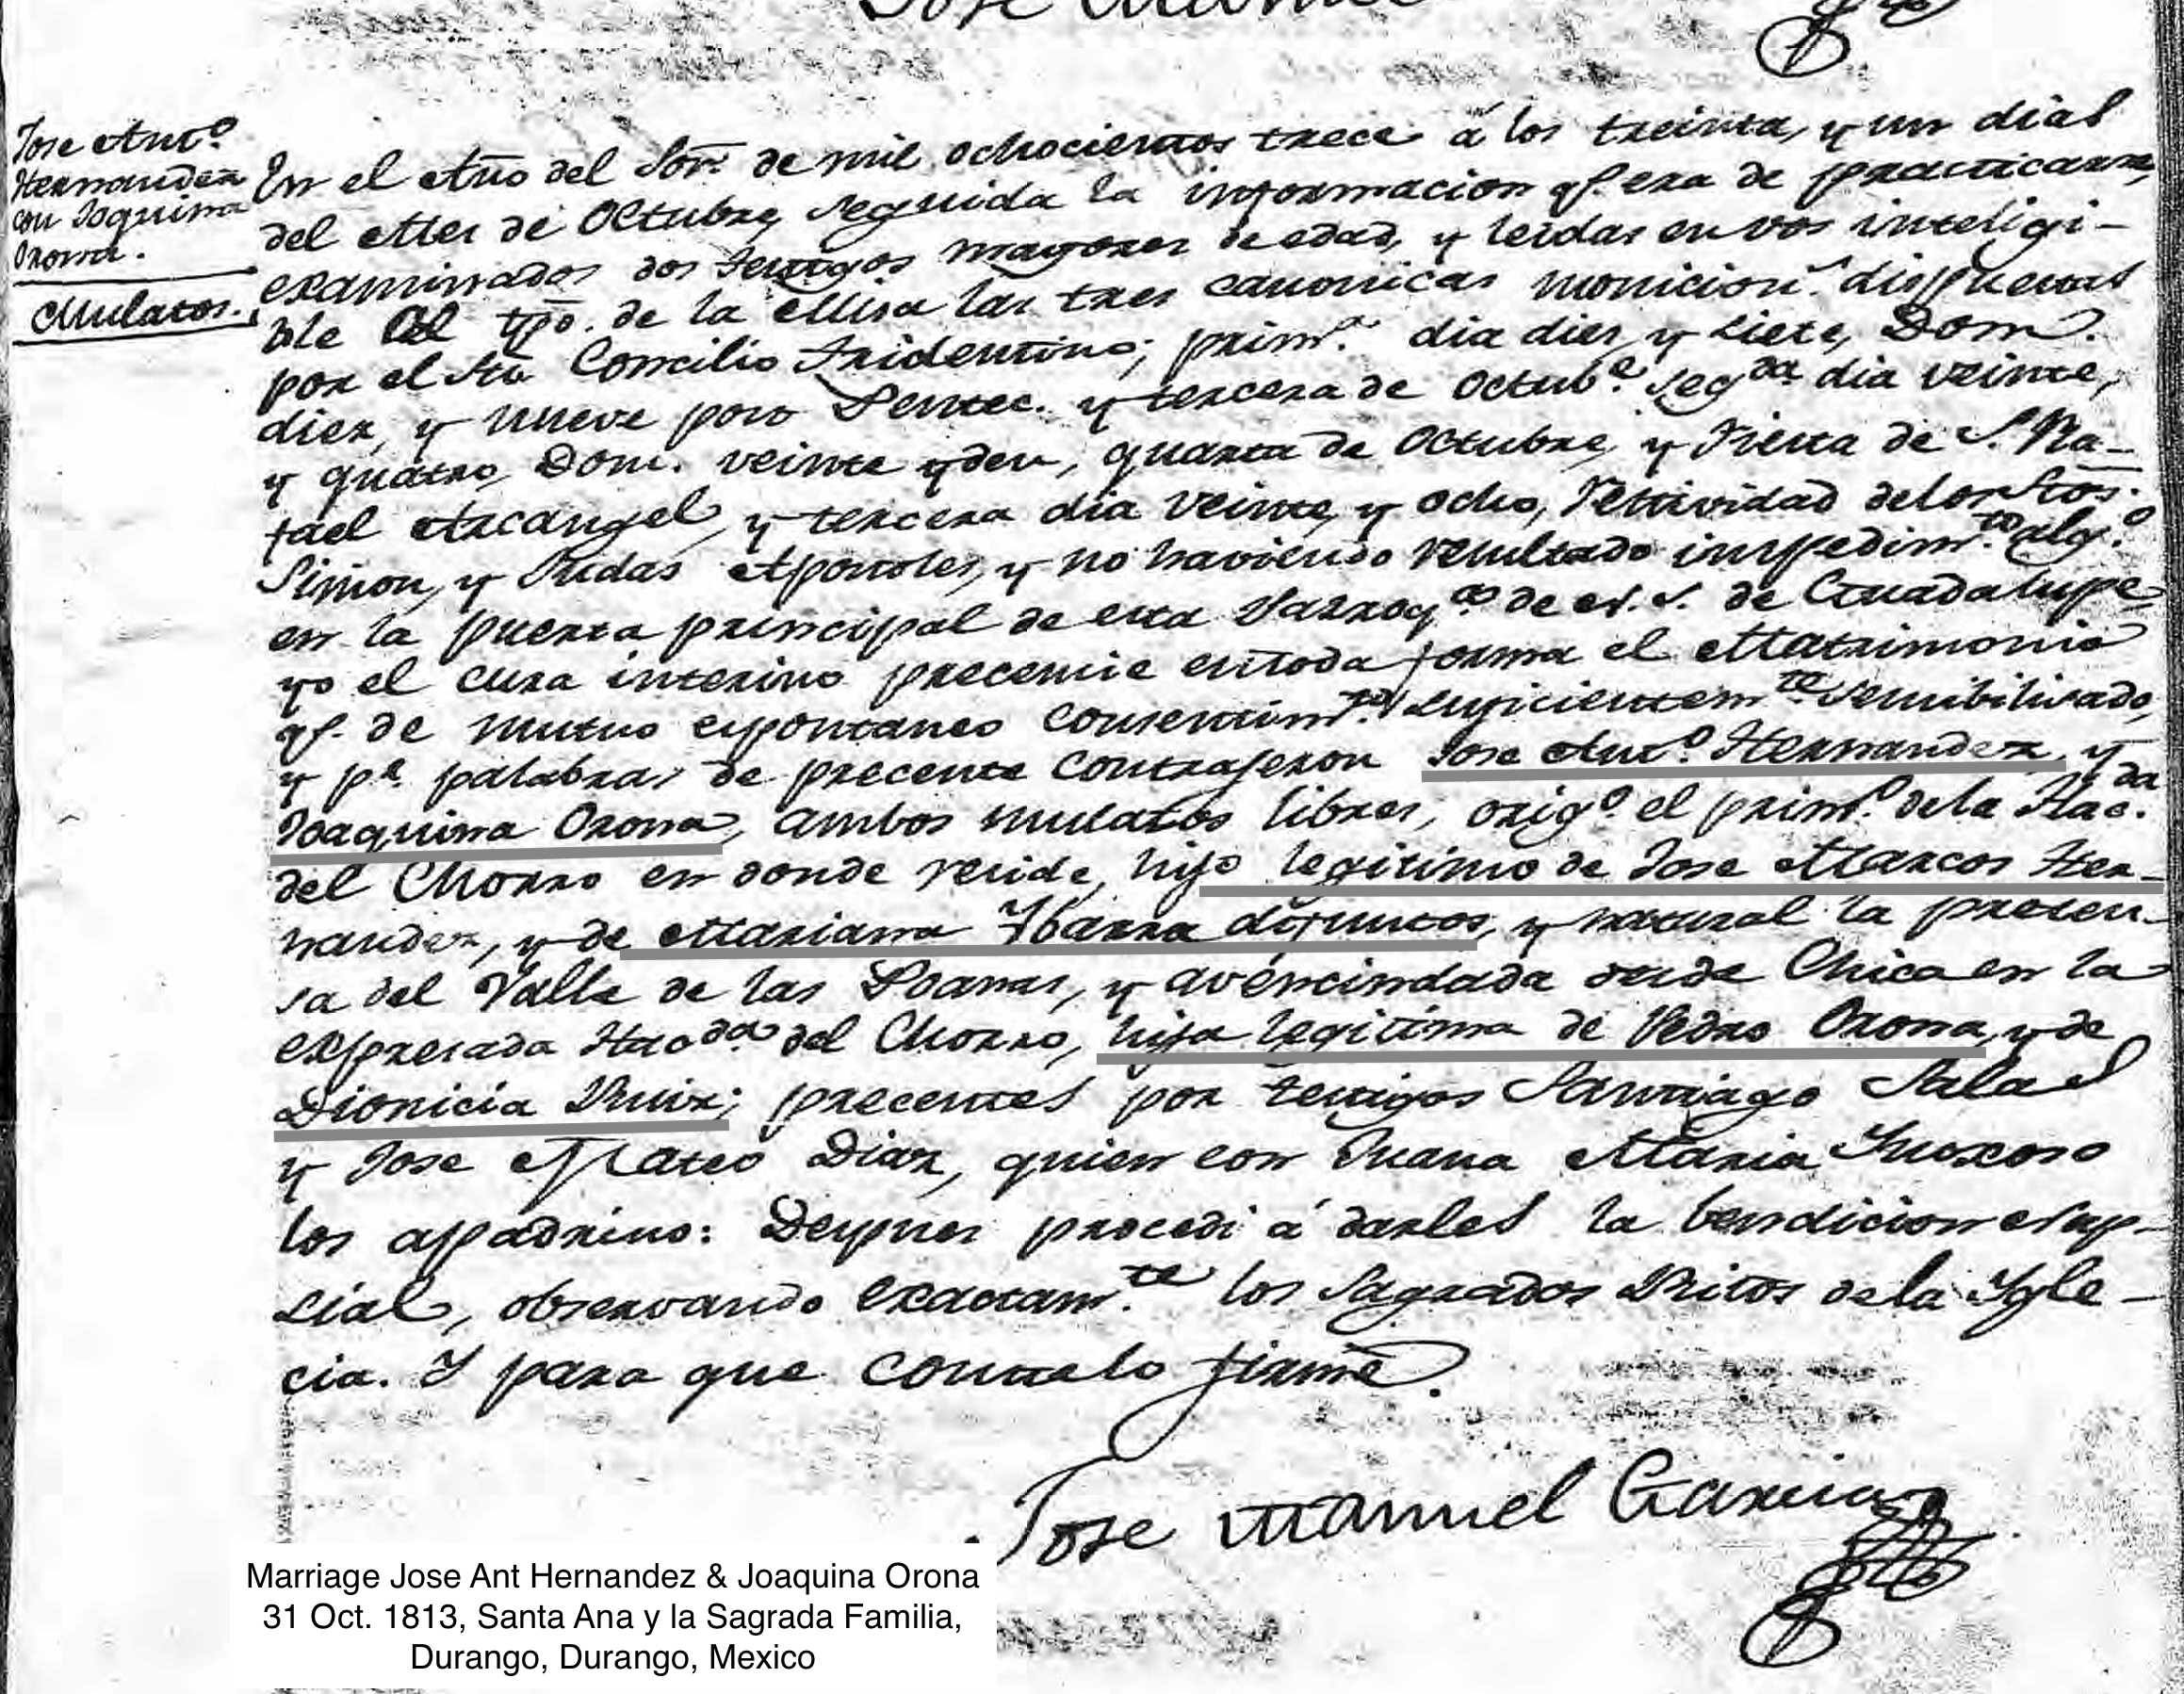 Jose Man
Jose Ant.º
Hernandez
con Joquina
Orona.
Mulatos.
En el Año del Sor. de mil ochocientos trece á los treinta, y un dias
del Mes de Octubre, seguida la informacion q.e era de practicarse,
examinados dos testigos mayores de edad, y leidas en vos inteligi-
ble al tpo. de la Misa las tres canonicas monicion.s dispuestas
por el Sto Concilio Tridentino; prim.a dia diez, y siete, Dom.
diez, y nueve post Pentec. y tercera de Octub.e seg.da dia veinte,
y quatro, Dom. veinte y quarta de Octubre, y Fiesta de S. Ra-
fael Arcangel, y tercera dia veinte, y ocho, Festividad de los Stos.
Simon, y Judas Apostoles, y no haviendo resultado impedim.to alg.º
en la puerta principal de esta Parroq.a de N. S. de Guadalupe,
yo el cura interino precencie en toda forma el Matrimonio
q.e de mutuo espontaneo consentim.to suficientem.te
y p.r palabras de precente contrageron Jose Ant.º Hernandez, y
Joaquina Orona, ambos mulatos libres, orig.º el prim.º de la Hac.da
del Chorro en donde reside, hijo legitimo de Jose Marcos Her-
nandez, y de Mariana Ybarra difuntos, y natural la preten-
sa del Valle de las Poanas, y avencindada desde Chica en la
expresada Hac.da del Chorro, hija legitima de Pedro Orona, y de
Dionicia Ruiz; precentes por testigos Santiago Salas
y Jose Mateo Diaz, quien con Juana Maria
los apadrino: Despues procedi á darles la bendicion Nup-
cial, observando exactam.te los Sagrados Ritos de la Ygle-
cia. Y para que conste lo firmé.
Jose Manuel Garcia
Marriage Jose Ant Hernandez & Joaquina Orona
31 Oct. 1813, Santa Ana y la Sagrada Familia,
Durango, Durango, Mexico